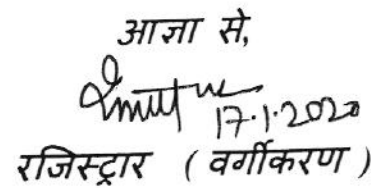 आज्ञा से,
17.1.2020
रजिस्ट्रार ( वर्गीकरण )